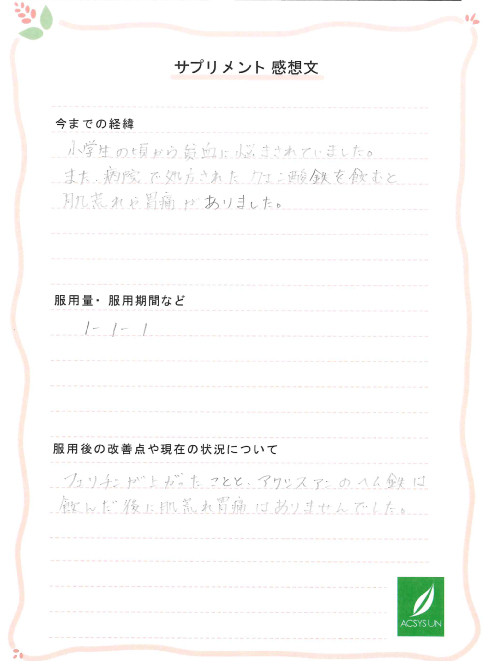 サプリメント 感想文
今までの経緯
小学生の頃から貧血に悩まされていました。
また、病院で処方されたクエン酸鉄を飲むと
肌荒れや胃痛がありました。
服用量・服用期間など
1-1-1
服用後の改善点や現在の状況について
フェリチンが上がったことと、アクシスアンのヘム鉄は
飲んだ後に肌荒れ胃痛はありませんでした。
ACSYSUN